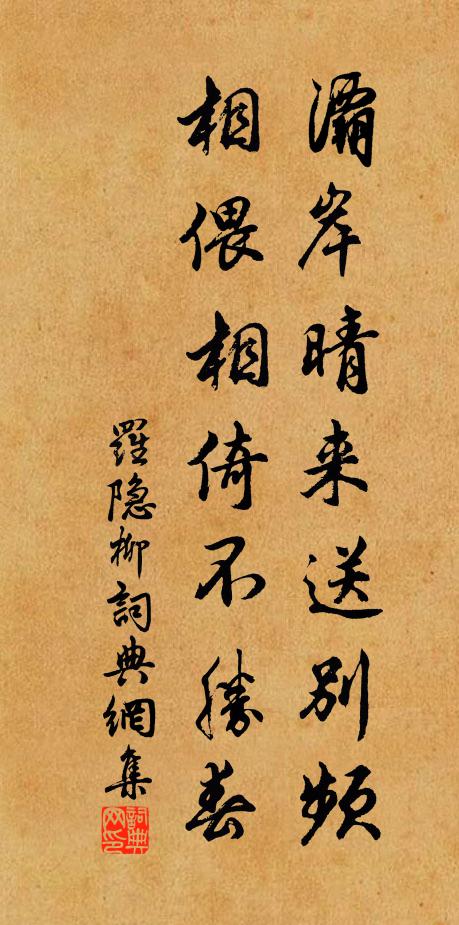 灞岸晴来送别频
相偎相倚不勝春
羅隐柳詞典網集
詞典网印